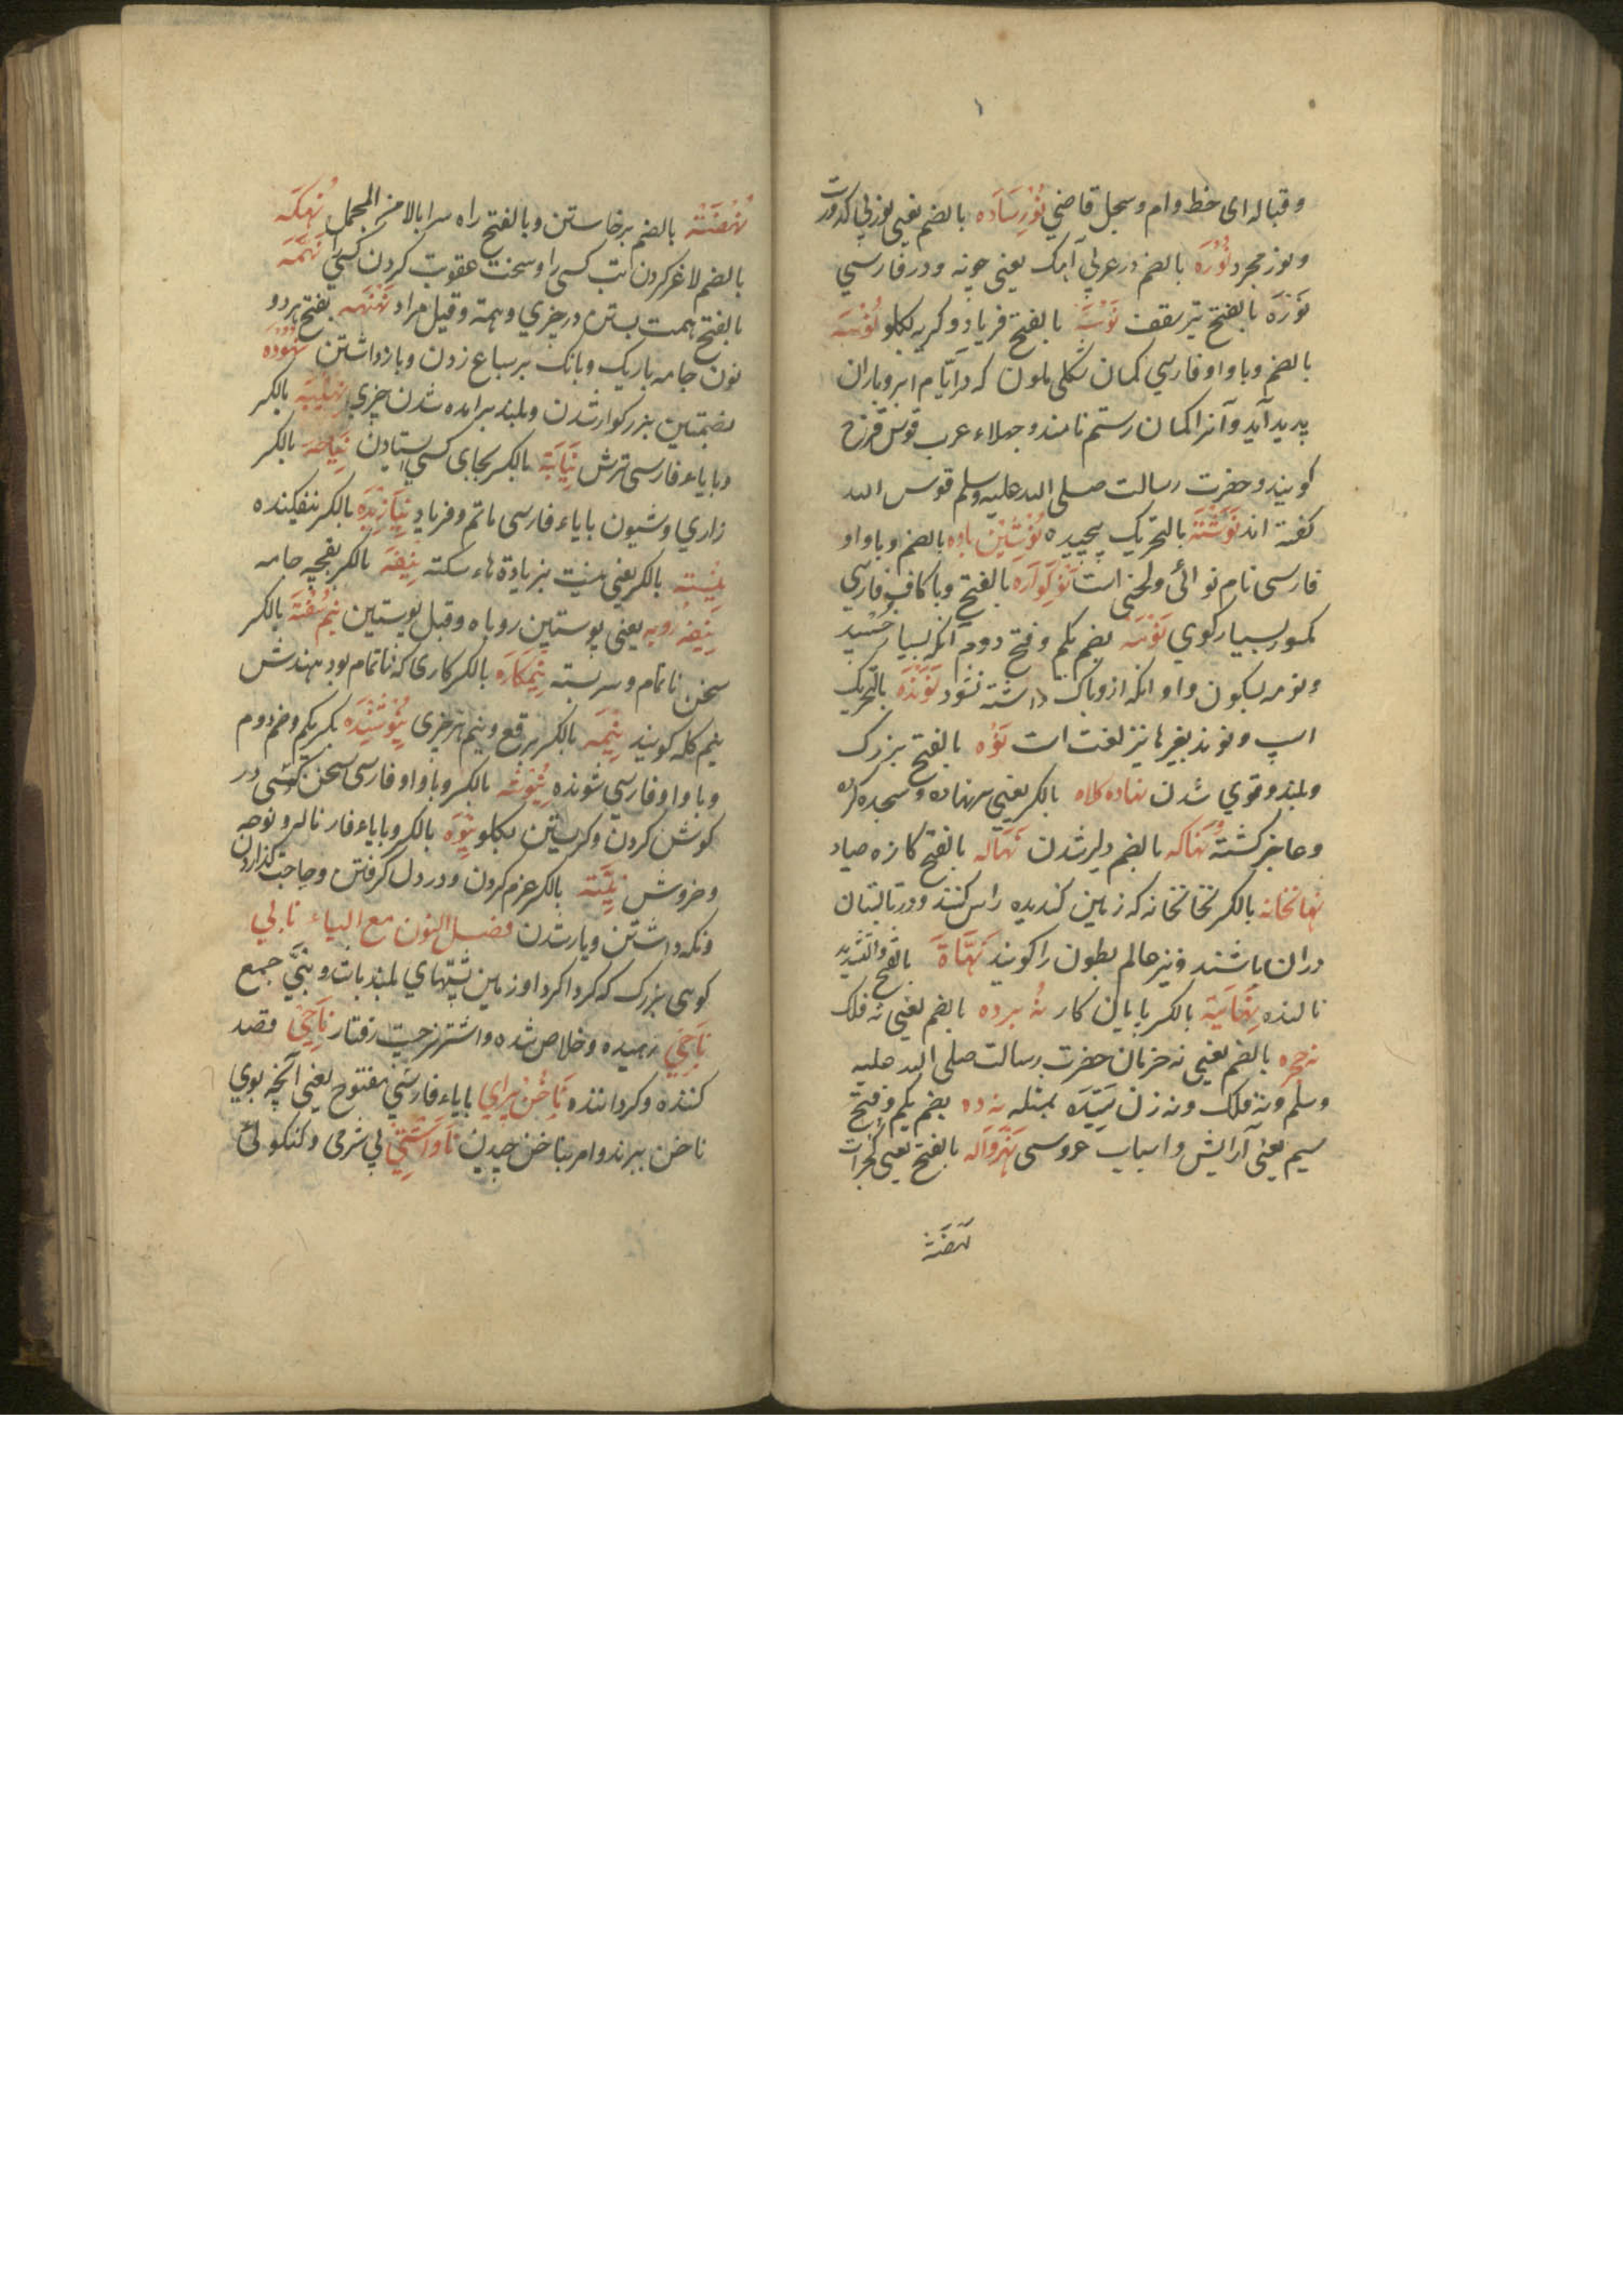 وقباله ای خط وام و سجل قاضی نُورِسَادَه بالضم یعنی نور بی کدورت
و نور مجرد نُورَه بالضم در عربی آهک یعنی چونه و در فارسی
نَوْزَه بالفتح تیر سقف نَوْسَه بالفتح فریاد و گریه بگلو نُوْسَه
بالضم و با واو فارسی کمان شکلی ملون که در ایام ابر و باران
پدید آید و آنرا کمان رستم نامند و جهلاء عرب قوس قزح
کویند و حضرت رسالت صلی الله علیه وسلم قوس الله
کفته اند نَوَشْتَه بالتحریک پیچیده نُوْشِیْن بادَه بالضم و با واو
فارسی نام نوائی و لحنی است نَوکِوَارَه بالفتح و با کاف فارسی
مکسور بسیار کوی نُوَمَه بضم یکم و فتح دوم انکه بسیار خسپد
و نومه بسکون واو انکه ازو باک داشته نشود نَوَنْدَه بالتحریک
اسپ و نوند بغیر ها نیز لغت است نَوْه بالفتح بزرک
و بلند و قوی شدن نهاده کلاه بالکسر یعنی سر نهاده و سجده کرده
و عاجز کشته نُهَاکَه بالضم دلیر شدن نَهَالَه بالفتح کازه صیاد
نِهانخانه بالکسر نخانخانه که زمین کندیده راس کنند و در تابستان
دران باشند و نیز عالم بطون را کویند نَهَّاةَ بالفتح والتشدید
نالنده نِهَایَة بالکسر پایان کار نُه پرده بالضم یعنی نه فلک
نه حجره بالضم یعنی نه حزمان حضرت رسالت صلی الله علیه
وسلم و نه فلک و نه زن سَیِّدَه بمثله نه ده بضم یکم و فتح
سیم یعنی آرایش و اسباب عروسی نَهْرَوَالَه بالفتح یعنی کجرات
نهضة
نُهْضَتَة بالضم برخاستن و بالفتح راه سرا بالا من المجمل نُهکَه
بالضم لاغر کردن تب کسی را و سخت عقوبت کردن کسیرا نَهْمَه
بالفتح همت بستن در چیزی و همة و قیل مراد نَهْنَهَه بفتح هر دو
نون جامه باریک و بانک بر سباع زدن و بازداشتن نُهُوْدَه
بضمتین بزرکوار شدن و بلند برامده شدن چیزی نِهِیْبَه بالکسر
و با یاء فارسی ترش نِیَابَة بالکسر بجای کسی ایستادن نِیَاحَة بالکسر
زاری و شیون با یاء فارسی ماتم و فریاد نِیَازِیْدَه بالکسر نفکینده
نِیْسته بالکسر یعنی نیست بزیادة هاء سکته نِیْفَه بالکسر بغچه جامه
نِیْفه روبه یعنی پوستین روباه و قیل پوستین نِیم سُفْتَه بالکسر
سخن ناتمام و سربسته نِیْمکَارَه بالکسر کاری که ناتمام بود بهندش
نیم کله کویند نِیْمَه بالکسر برقع و نیم هر چیزی نِیُوْشَنْدَه بکسر یکم و ضم دوم
و با واو فارسی شنونده نِیُوْشَه بالکسر و با واو فارسی سخن کسی در
کوش کردن و کریستن بگلو نِیْوَه بالکسر و با یاء فار ناله و نوحه
و خروش نِیَّتَه بالکسر عزم کردن و در دل کرفتن و حاجت کذاردن
و نکه داشتن و یار شدن فصل النون مع الیاء نابی
کوهی بزرک که کرداکرد او زمین پشتهای بلند باشد و نَبِیَّ جمع
نَاجِیْ رهیده و خلاص شده و اشتر چست رفتار نَاحِیْ قصد
کننده و کرداننده نَاخُنْ پِرَای با یاء فارسی مفتوح یعنی آنچه بوی
ناخن ببرند و امر بناخن چیدن نَاوَاشْتِیْ بی شرمی و کنکولی